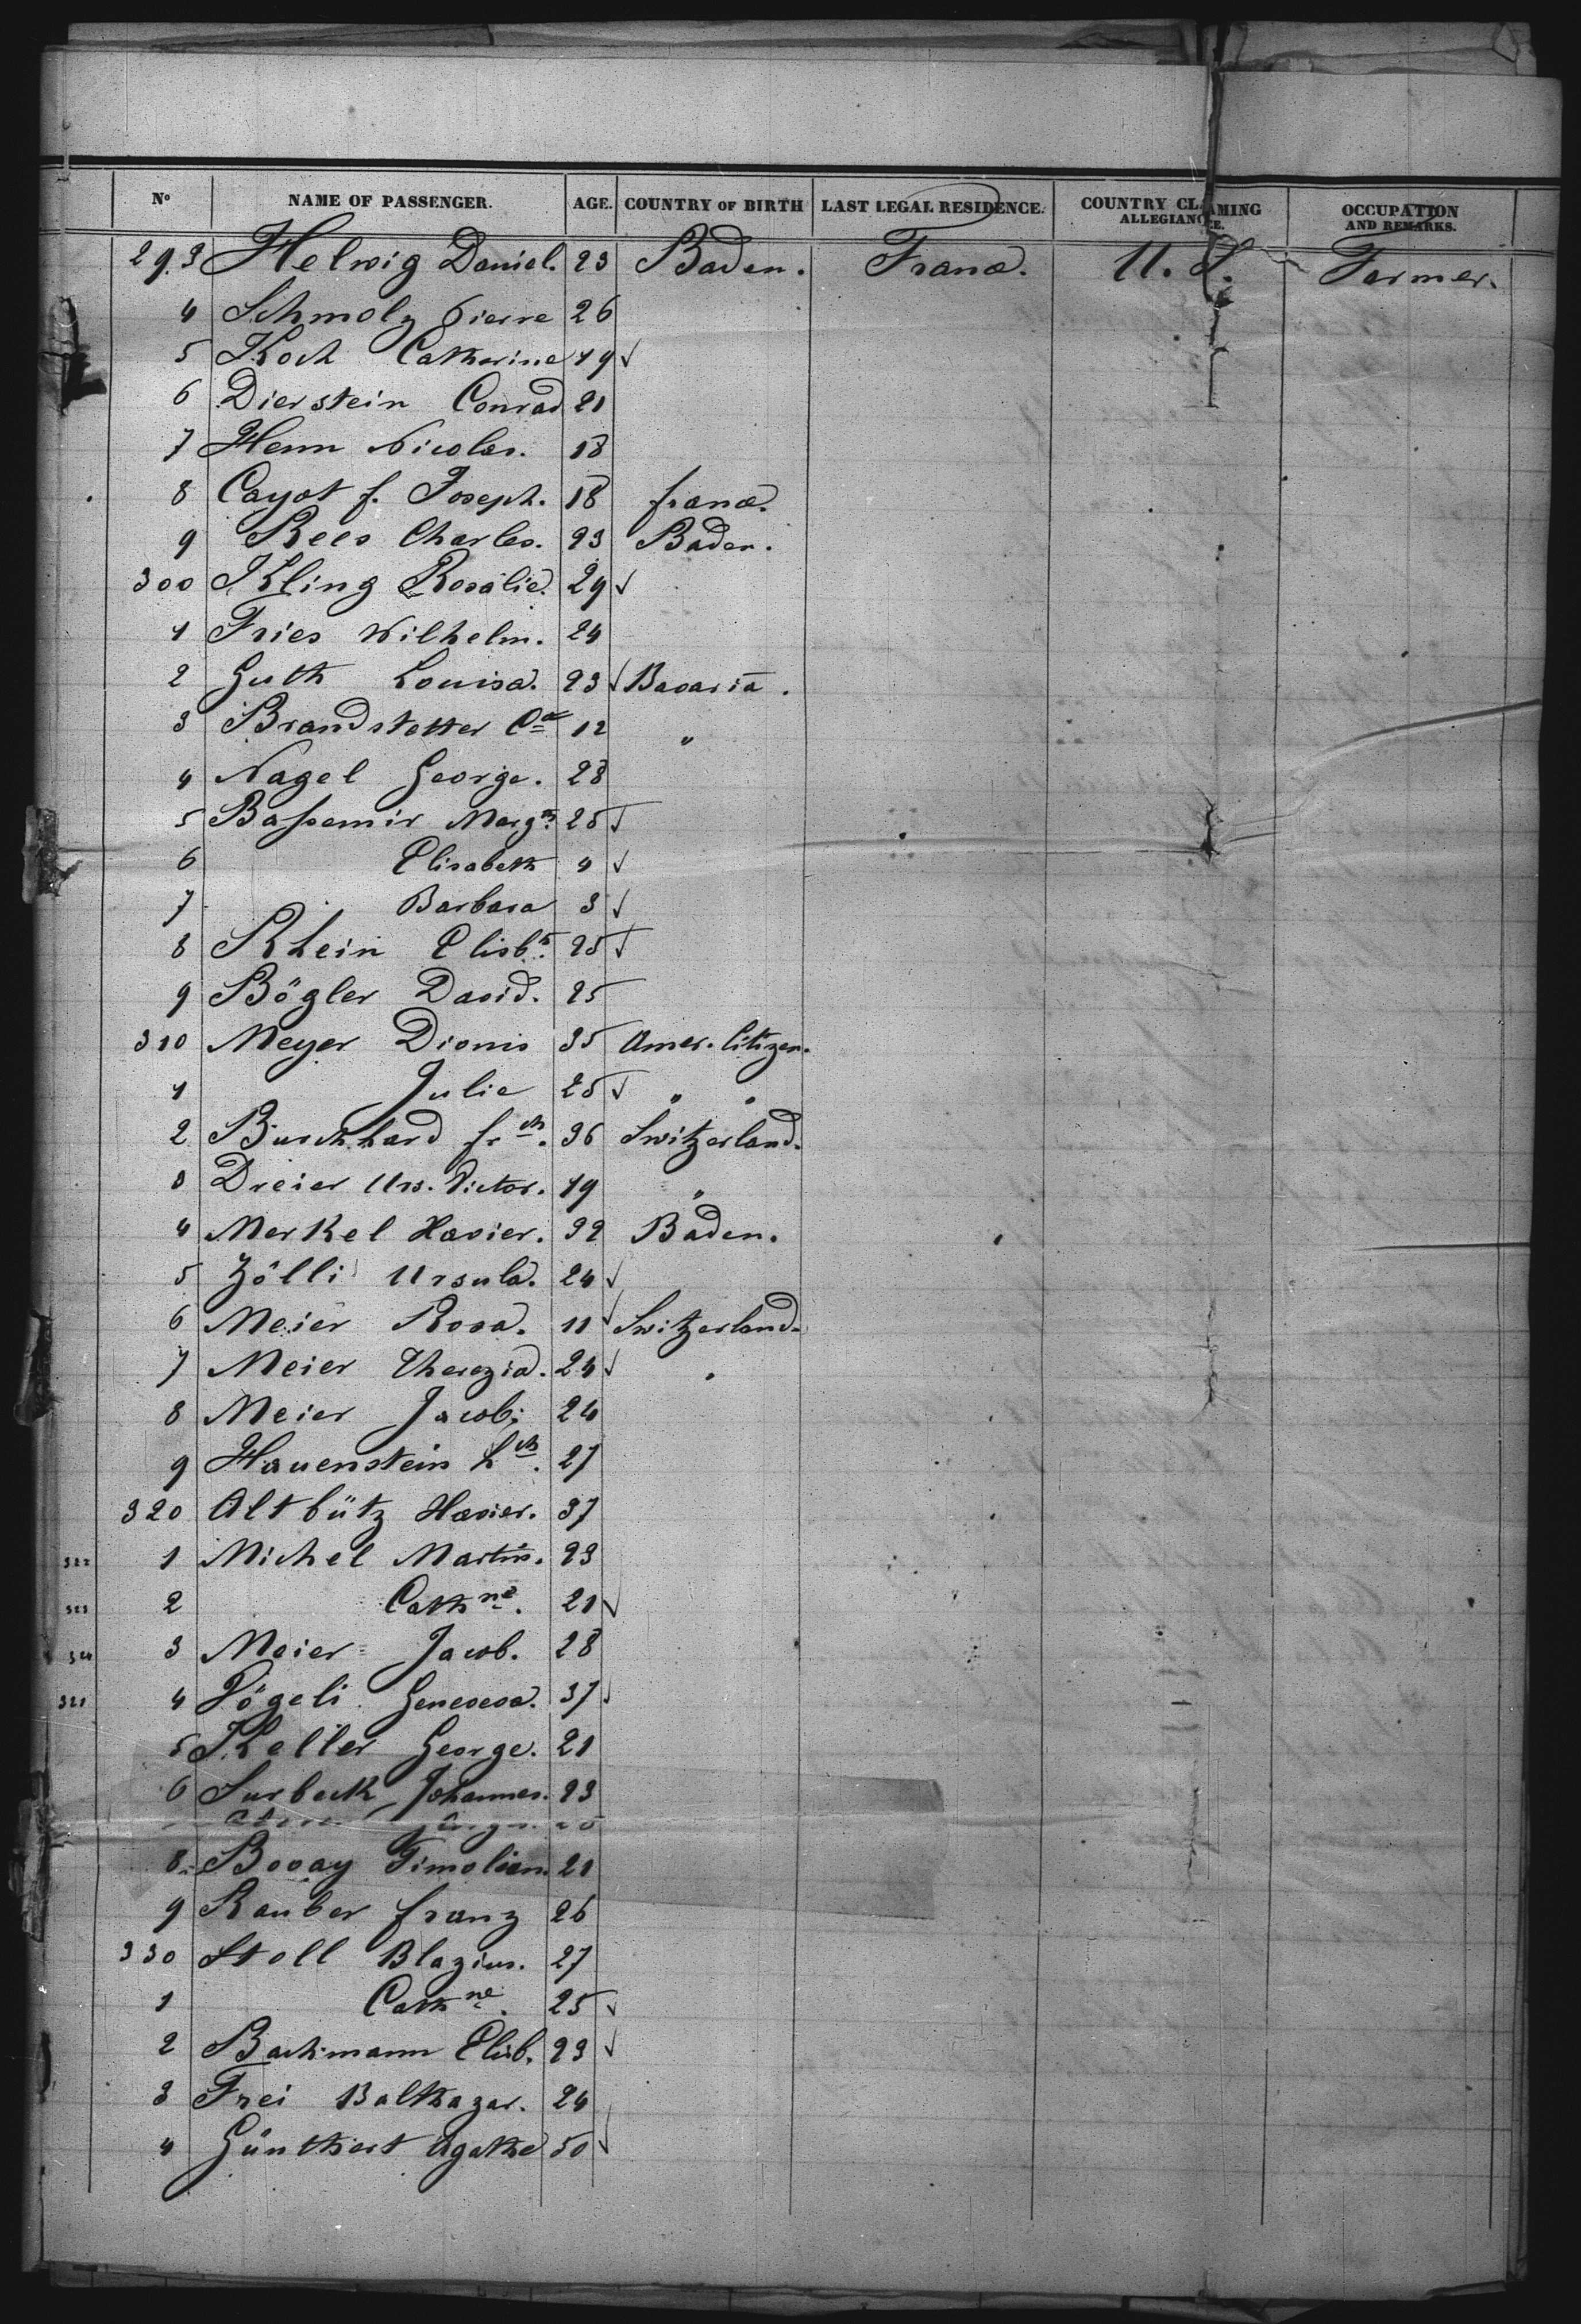 Nº NAME OF PASSENGER. AGE. COUNTRY OF BIRTH LAST LEGAL RESIDENCE. COUNTRY CLAIMING ALLEGIANCE. OCCUPATION AND REMARKS.
293 Helwig Daniel. 23 Baden. France. U. S. Farmer.
4 Schmolz Pierre 26
5 Koch Catherine 19 ✓
6 Dierstein Conrad 21
7 Henn Nicolas. 18
8 Cayot f. Joseph. 18 france.
9 Rees Charles. 23 Baden.
300 Kling Rosalie. 29 ✓
1 Fries Wilhelm. 24
2 Guth Louisa. 23 ✓ Bavaria.
3 Brandstetter 12 "
4 Nagel George. 28
5 Bassemir Margth. 25 ✓
6 Elisabeth 4 ✓
7 Barbara 3 ✓
8 Rhein Elisbth. 25 ✓
9 Bögler David. 25
310 Meyer Dionis 35 Amer. Citizen.
1 Julie 25 ✓ " "
2 Burkhard frch. 36 Switzerland.
3 Dreier Urs. Victor. 19 "
4 Merkel Xavier. 32 Baden.
5 Zölli Ursula. 24 ✓
6 Meier Rosa. 11 ✓ Switzerland.
7 Meier Therezia. 24 ✓ "
8 Meier Jacob. 24
9 Hauenstein Hch. 27
320 Altbütz Xavier. 37
322 1 Michel Martin. 23
323 2 Cathne. 21 ✓
324 3 Meier Jacob. 28
321 4 Vögeli Geneveva. 37 ✓
5 Keller George. 21
6 Surbeck Johannes. 23
8 Bovay Timolion 21
9 Rauber franz 26
330 Stoll Blazius. 27
1 Cathne. 25 ✓
2 Bachmann Elisb. 23 ✓
3 Frei Balthazar. 24
4 Günthert Agathe 50 ✓